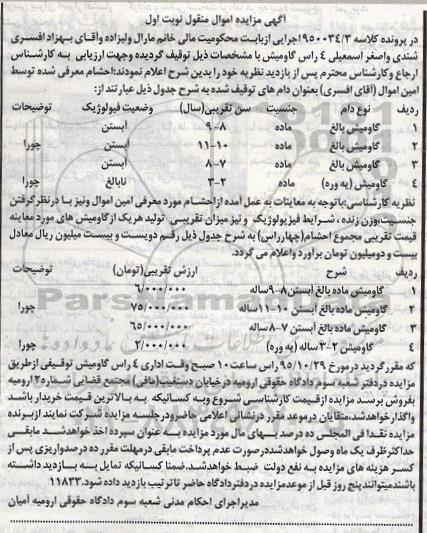 آگهی مزایده اموال منقول نوبت اول
در پرونده کلاسه ۹۵۰۰۰۳۴/۳ اجرایی ازبابت محکومیت مالی خانم مارال ولیزاده وآقای بهزاد افسری
شندی واصغر اسمعیلی ۴ راس گاومیش با مشخصات ذیل توقیف گردیده وجهت ارزیابی به کارشناس
ارجاع وکارشناس محترم پس از بازدید نظریه خود را بدین شرح اعلام نمودند:احشام معرفی شده توسط
امین اموال (آقای افسری) بعنوان دام های توقیف شده به شرح جدول ذیل عبارتند از:
ردیف نوع دام جنسیت سن تقریبی(سال) وضعیت فیولوژیک توضیحات
۱ گاومیش بالغ ماده ۸-۹ آبستن
۲ گاومیش بالغ ماده ۱۰-۱۱ آبستن چورا
۳ گاومیش بالغ ماده ۷-۸ آبستن
۴ گاومیش (یه وره) ماده ۲-۳ نابالغ چورا
نظریه کارشناسی:باتوجه به معاینات به عمل آمده ازاحشام مورد معرفی امین اموال ونیز با درنظرگرفتن
جنسیت،وزن زنده ، شرایط فیزیولوژیک و نیز میزان تقریبی تولید هریک ازگاومیش های مورد معاینه
قیمت تقریبی مجموع احشام(چهارراس) به شرح جدول ذیل رقم دویست و بیست میلیون ریال معادل
بیست و دومیلیون تومان برآورد واعلام می گردد.
ردیف شرح ارزش تقریبی(تومان) توضیحات
۱ گاومیش ماده بالغ آبستن ۸-۹ساله ۶/۰۰۰/۰۰۰
۲ گاومیش ماده بالغ آبستن ۱۰-۱۱ساله ۷۵/۰۰۰/۰۰۰ چورا
۳ گاومیش ماده بالغ آبستن ۷-۸ ساله ۶۵/۰۰۰/۰۰۰
۴ گاومیش ۲-۳ساله (یه وره) ۲/۰۰۰/۰۰۰ چورا
که مقرر گردید درمورخ ۹۵/۱۰/۲۹ راس ساعت ۱۰ صبح وقت اداری ۴ راس گاومیش توقیفی ازطریق
مزایده دردفتر شعبه سوم دادگاه حقوقی ارومیه درخیابان دستغیب(مافی) مجتمع قضایی شماره۲ ارومیه
بفروش برسد مزایده ازقیمت کارشناسی شروع وبه کسانیکه به بالاترین قیمت خریدار باشد
واگذارخواهدشد،متقاین درموعد مقرر درنشانی اعلامی حاضرودرجلسه مزایده شرکت نمایند ازبرنده
مزایده نقدا فی المجلس ده درصد بهای مال مورد مزایده به عنوان سپرده اخذ خواهدشد مابقی
حداکثر ظرف یک ماه وصول خواهدشددرصورت عدم پرداخت مابقی درمهلت مقرر ده درصدواریزی پس از
کسر هزینه های مزایده به نفع دولت ضبط خواهدشد.ضمنا کسانیکه تمایل به بازدید داشته
باشندمیتوانند پنج روز قبل از موعدمزایده دردفتردادگاه حاضر تاترتیب بازدید داده شود.۱۱۸۳۳
مدیراجرای احکام مدنی شعبه سوم دادگاه حقوقی ارومیه آمیان
ParsNamadData